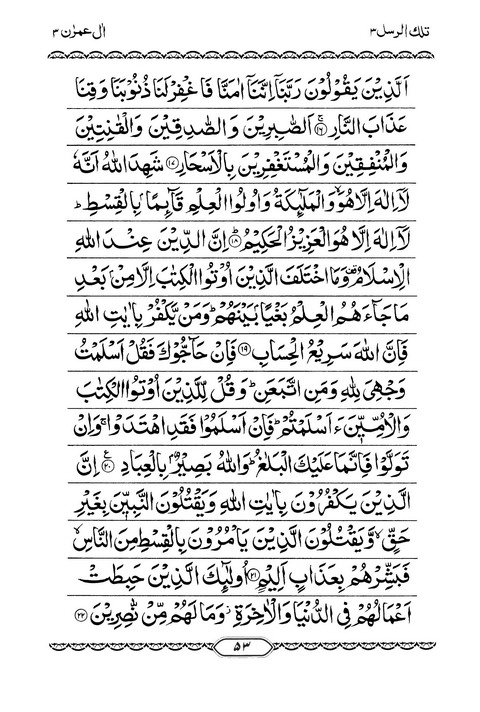 تلك الرسل ٣
اٰل عمرٰن ٣
اَلَّذِيْنَ يَقُوْلُوْنَ رَبَّنَاۤ اِنَّنَاۤ اٰمَنَّا فَاغْفِرْ لَنَا ذُنُوْبَنَا وَقِنَا
عَذَابَ النَّارِ ۚ‏﴿۱۶﴾ اَلصّٰبِرِيْنَ وَالصّٰدِقِيْنَ وَالْقٰنِتِيْنَ
وَالْمُنْفِقِيْنَ وَالْمُسْتَغْفِرِيْنَ بِالْاَسْحَارِ ﴿۱۷﴾ شَهِدَ اللّٰهُ اَنَّهٗ
لَاۤ اِلٰهَ اِلَّا هُوَ ۙ وَالْمَلٰٓئِكَةُ وَاُولُوا الْعِلْمِ قَآئِمًا ۢ بِالْقِسْطِ ؕ
لَاۤ اِلٰهَ اِلَّا هُوَ الْعَزِيْزُ الْحَكِيْمُ ؕ ﴿۱۸﴾ اِنَّ الدِّيْنَ عِنْدَ اللّٰهِ
الْاِسْلَامُ ۟ وَمَا اخْتَلَفَ الَّذِيْنَ اُوْتُوا الْكِتٰبَ اِلَّا مِنْۢ بَعْدِ
مَا جَآءَهُمُ الْعِلْمُ بَغْيًا ۢ بَيْنَهُمْ ؕ وَمَنْ يَّكْفُرْ بِاٰيٰتِ اللّٰهِ
فَاِنَّ اللّٰهَ سَرِيْعُ الْحِسَابِ ﴿۱۹﴾ فَاِنْ حَآجُّوْكَ فَقُلْ اَسْلَمْتُ
وَجْهِيَ لِلّٰهِ وَمَنِ اتَّبَعَنِ ؕ وَقُلْ لِّلَّذِيْنَ اُوْتُوا الْكِتٰبَ
وَالْاُمِّيّٖنَ ءَاَسْلَمْتُمْ ؕ فَاِنْ اَسْلَمُوْا فَقَدِ اهْتَدَوْا ۚ وَاِنْ
تَوَلَّوْا فَاِنَّمَا عَلَيْكَ الْبَلٰغُ ؕ وَاللّٰهُ بَصِيْرٌۢ بِالْعِبَادِ ﴿۲۰﴾ اِنَّ
الَّذِيْنَ يَكْفُرُوْنَ بِاٰيٰتِ اللّٰهِ وَيَقْتُلُوْنَ النَّبِيّٖنَ بِغَيْرِ
حَقٍّ ۙ وَّيَقْتُلُوْنَ الَّذِيْنَ يَاْمُرُوْنَ بِالْقِسْطِ مِنَ النَّاسِ ۙ
فَبَشِّرْهُمْ بِعَذَابٍ اَلِيْمٍ ﴿۲۱﴾ اُولٰٓئِكَ الَّذِيْنَ حَبِطَتْ
اَعْمَالُهُمْ فِي الدُّنْيَا وَالْاٰخِرَةِ ؗ وَمَا لَهُمْ مِّنْ نّٰصِرِيْنَ ﴿۲۲﴾
۵۳